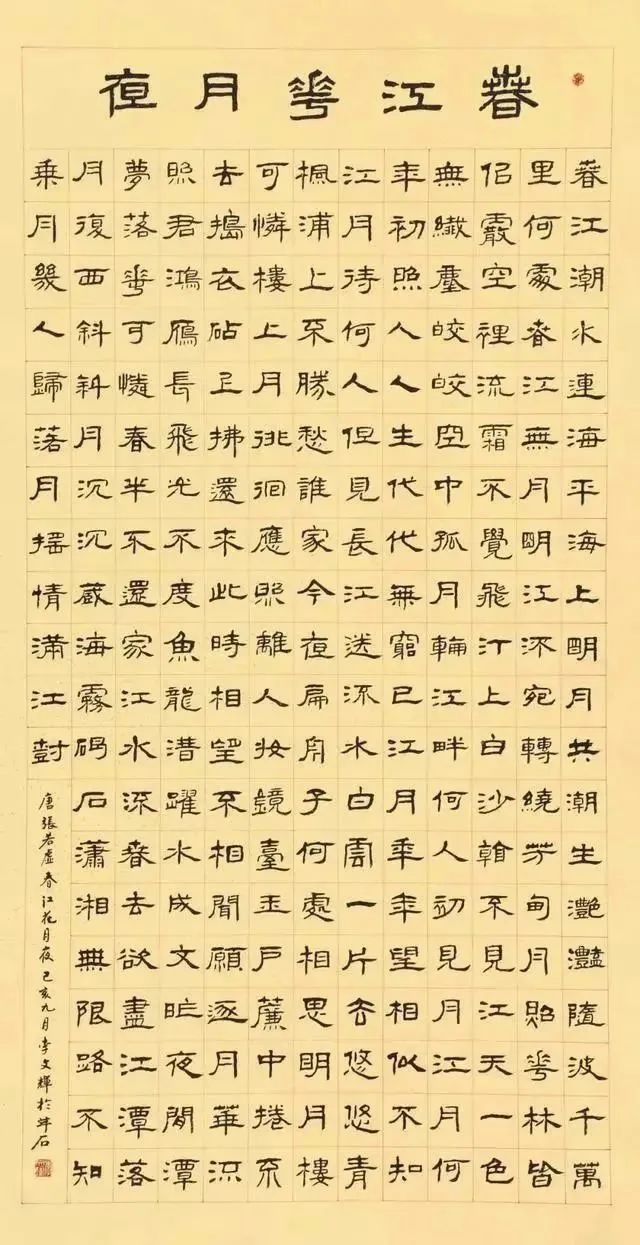 春江花月夜
春江潮水連海平海上明月共潮生灧灧隨波千萬
里何處春江無月明江流宛轉繞芳甸月照花林皆
似霰空裡流霜不覺飛汀上白沙看不見江天一色
無纖塵皎皎空中孤月輪江畔何人初見月江月何
年初照人人生代代無窮已江月年年望相似不知
江月待何人但見長江送流水白雲一片去悠悠青
楓浦上不勝愁誰家今夜扁舟子何處相思明月樓
可憐樓上月徘徊應照離人妝鏡臺玉戶簾中捲不
去搗衣砧上拂還來此時相望不相聞願逐月華流
照君鴻雁長飛光不度魚龍潛躍水成文昨夜閒潭
夢落花可憐春半不還家江水流春去欲盡江潭落
月復西斜斜月沉沉藏海霧碣石瀟湘無限路不知
乘月幾人歸落月搖情滿江樹
唐張若虛春江花月夜己亥九月李文輝於石